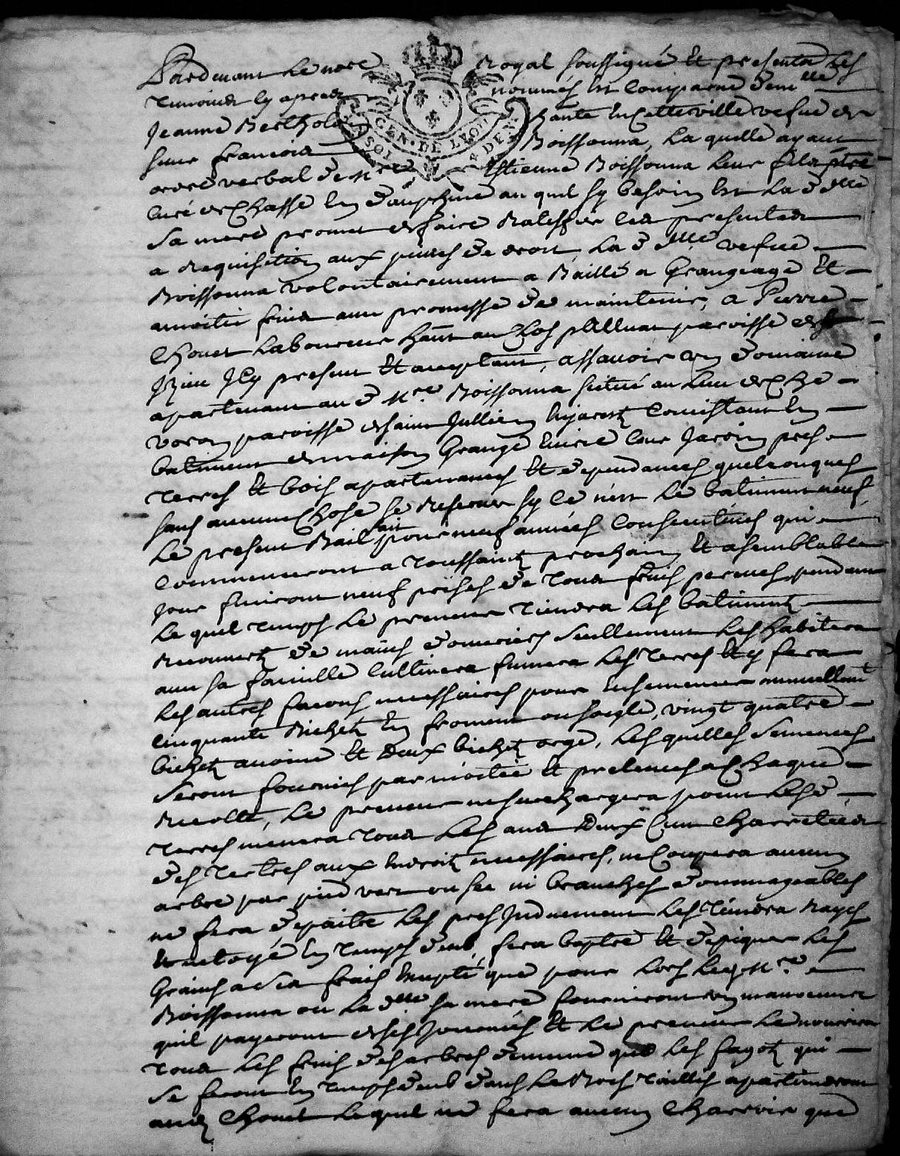 Pardevant le nore Royal soussigné et presents les
temoins cy apres nommés est comparue demlle
Jeanne Berthol hante en cette ville vefue de
sieur francois Boissonna, La quelle ayant
ordre verbal de Mre Estienne Boissonna leur fils pbre
curé de Chasse en dauphiné auquel sy besoin est la dlle
sa mere promet de faire Ratiffier les presentes
a Requisition aux peines de droit, la dlle vefue
Boissonna volontairement a Baillé a Grangeage et
amoitié fruis avec promesse de maintenir, a Pierre
Chouet Laboureur hant au paroisse de
Izieu Icy present et acceptant, assavoir un domaine
apartenant au d Mre Boissonna situé au lieu de Che
voron paroisse de saint Jullien en Jarest Consistant en
batiment de maison Grange Ecurie Cour Jardin pres
terres et bois apartenances et dependances quelconques
sans aucune chose se Reserver sy ce n'est le batiment neuf
Le present Bail fait pour neuf années Consecutives qui
commenceront a Toussaint prochain et a semblable
jour finiront neuf prises de tous fruis perçues, pendant
le quel temps le preneur tiendra les batiments
Recouverts de mains d'ouvriers seullement les habitera
avec sa famille cultivera fumera les terres et y fera
les autres façons necessaires pour ensemencer annuellemt
cinquante Bichets en froment ou seigle, vingt quatre
bichets avoine et Deux bichets orge, les quelles semences
seront fournies par moitié et prelevées a chaque
Recolte, le preneur ne surchargera point les de
terres menera tous les ans Deux Cent Charretées
des tertres aux endroits necessaires, ne coupera aucun
arbre par pied vert ou sec ni branches dommageables
ne fera depaitre les pres Induement les tiendra Rayés
et netoyé en temps deub fera baptre et depiquer les
Grains a ses frais excepté que pour lors led Mre
Boissonna ou la dlle sa mere fourniront un manoeuvre
quil payeront de ses Journées et le preneur le nourrira
tous les fruis des arbres de mesme que les fagots qui
se feront en temps deub dans le Bois Taillis apartiendront
aud Chouet lequel ne fera aucun Charroir que
GEN. DE LEON
SOLS DEN